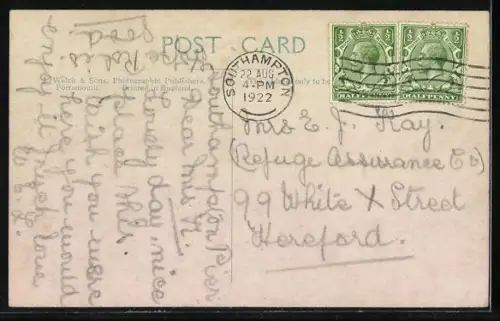 POST CARD
Welch & Sons, Photographic Publishers,
Portsmouth. Printed in England.
only to be
SOUTHAMPTON
22 AUG
4-PM
1922
HALFPENNY
HALFPENNY
Southampton Pier
Dear Mrs K.
Lovely day, nice
place this.
Wish you were
here you would
enjoy it, much love
Mrs E. J. Kay.
(Refuge Assurance Co)
99 White X Street
Hereford.